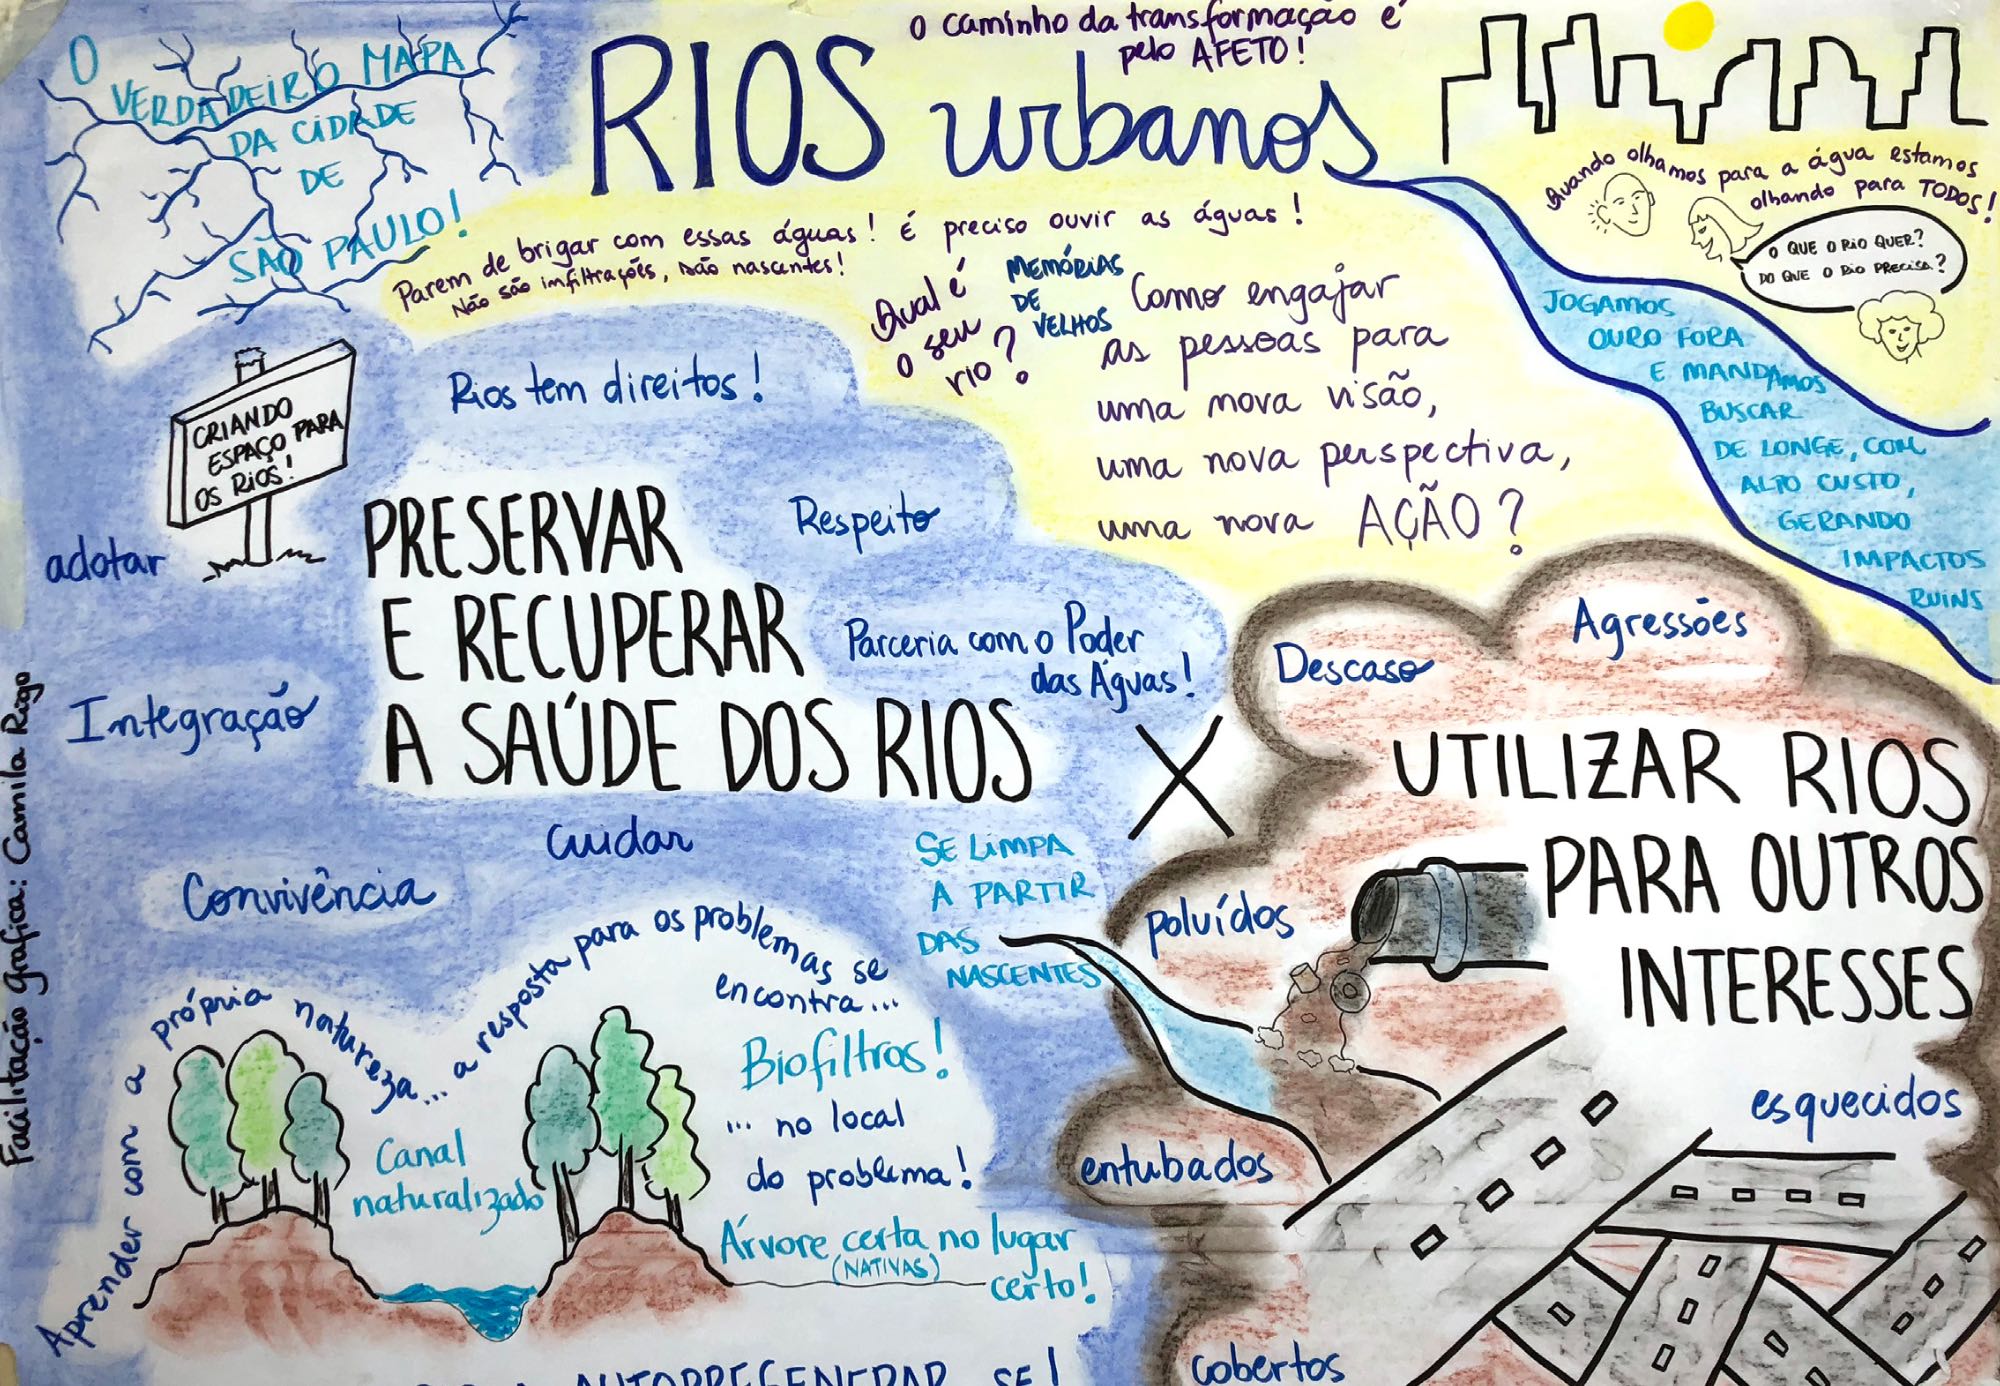 O
VERDADEIRO MAPA
DA CIDADE
DE
SÃO PAULO!
RIOS urbanos
O caminho da transformação é
pelo AFETO!
Quando olhamos para a água estamos
olhando para TODOS!
O QUE O RIO QUER?
DO QUE O RIO PRECISA?
Parem de brigar com essas águas! É preciso ouvir as águas!
Não são infiltrações, são nascentes!
Qual é
o seu
rio?
MEMÓRIAS
DE
VELHOS
Como engajar
as pessoas para
uma nova visão,
uma nova perspectiva,
uma nova AÇÃO?
JOGAMOS
OURO FORA
E MANDAMOS
BUSCAR
DE LONGE, COM
ALTO CUSTO,
GERANDO
IMPACTOS
RUINS
CRIANDO
ESPAÇO PARA
OS RIOS!
Rios tem direitos!
Respeito
adotar
PRESERVAR
E RECUPERAR
A SAÚDE DOS RIOS
Parceria com o Poder
das Águas!
Integração
Cuidar
Convivência
X
Descaso
Agressões
UTILIZAR RIOS
PARA OUTROS
INTERESSES
SE LIMPA
A PARTIR
DAS
NASCENTES
poluídos
entubados
esquecidos
cobertos
Aprender com a própria natureza... a resposta para os problemas se
encontra...
Biofiltros!
... no local
do problema!
Canal
naturalizado
Árvore certa no lugar
(NATIVAS)
certo!
AUTORREGENERAR-SE!
Facilitação gráfica: Camila Rogo